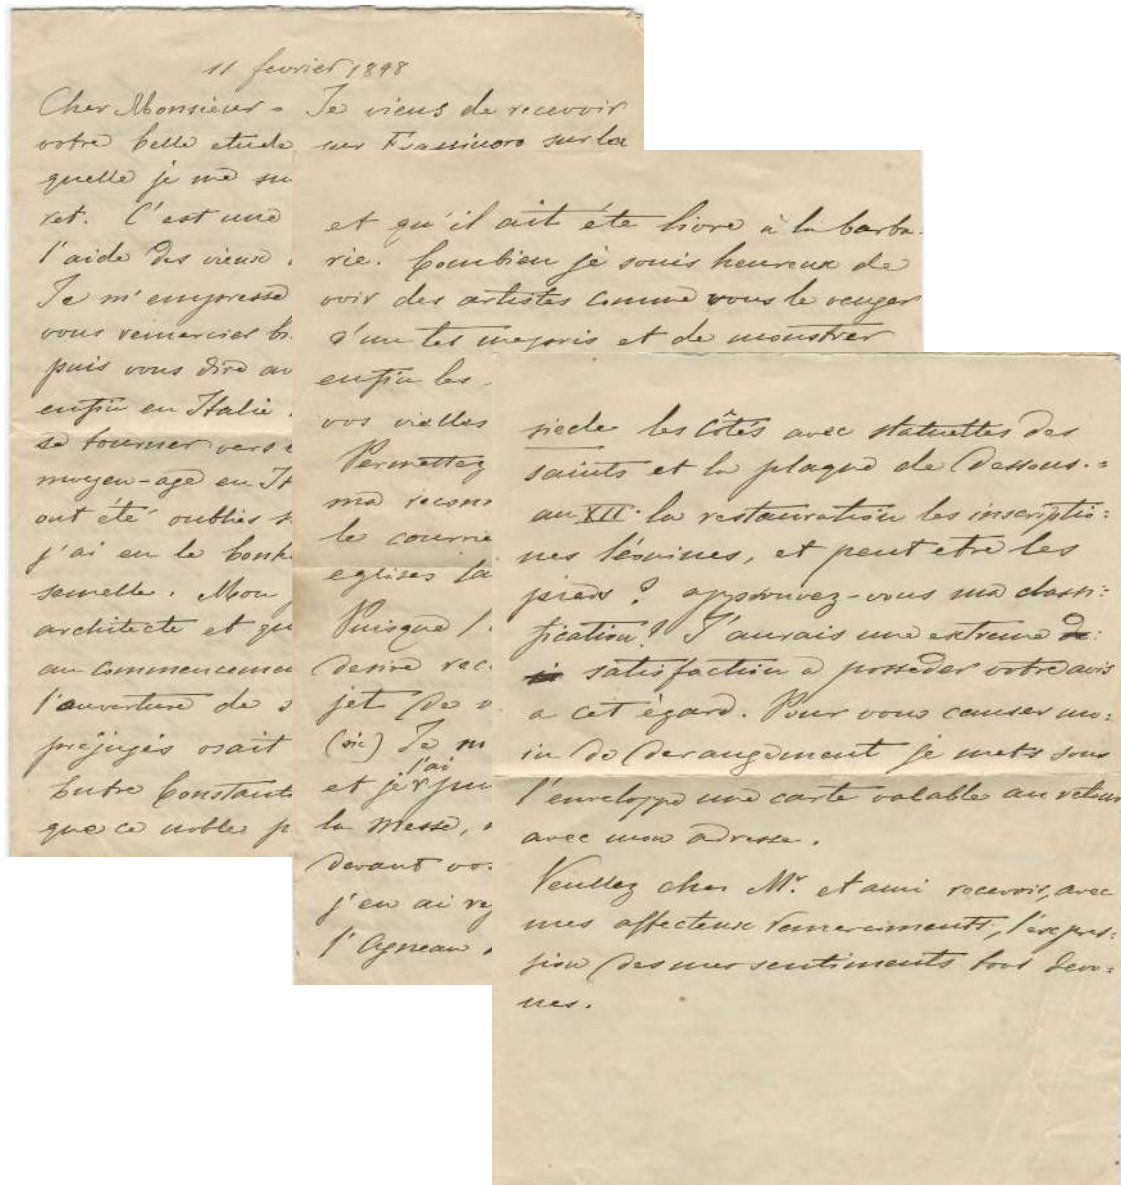 11 fevrier 1898
Cher Monsieur = Je viens de recevoir
votre belle etude sur Frassinoro sur la
quelle je me su
ret. C'est une
l'aide des vieux
Je m'empresse
vous remercier b
puis vous dire au
enfin en Italie
se tourner vers
moyen-age en It
ont été oublies
j'ai eu le bonh
semelle. Mon
architecte et qu
au commencemen
l'ouverture de s
préjugés osait
Entre Constant
que ce noble p
et qu'il ait été livre à la barba-
rie. Combien je souis heureux de
voir des artistes comme vous le venger
d'un tel mepris et de monstrer
enfin les
vos vielles
Permettez
ma recon
le courrie
eglises
Puisque l'
desire rec
jet de v
(sic) Je m
l'ai
et je
la Messe,
devant vo
j'en ai re
l'Agneau
siecle les côtés avec statuettes des
saints et la plaque de dessous. =
au XII. la restauration les inscriptio:
nes léonines, et peut etre les
pieds? approuvez-vous ma classi:
fication? J'aurais une extreme
satisfaction a posseder votre avis
a cet égard. Pour vous causer mo:
in de derangement je mets sous
l'enveloppe une carte valable au retour
avec mon adresse.
Veullez cher Mr. et ami recevoir, avec
mes affecteux remerciments, l'expres:
sion des mes sentiments tous devo:
ues.